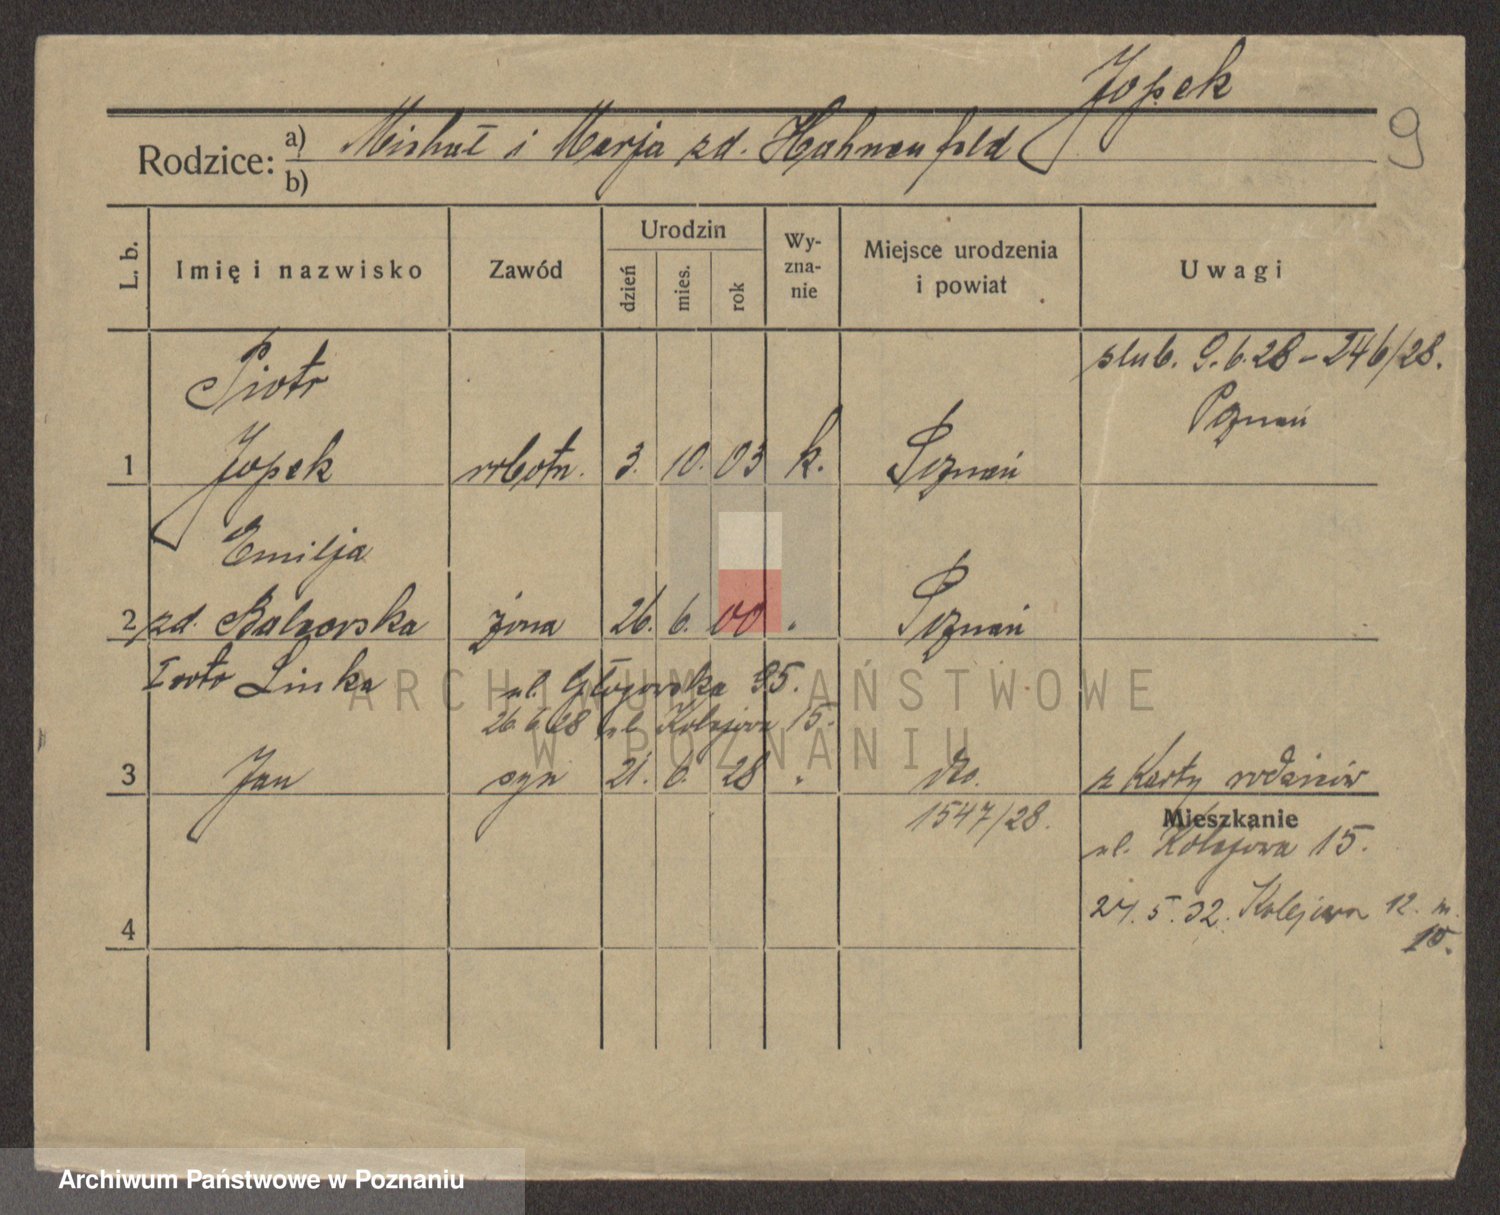 Jopek
9
Rodzice: a) Michał i Marja zd. Hahnenfeld
b)
L. b. Imię i nazwisko Zawód Urodzin dzień mies. rok Wy-zna-nie Miejsce urodzenia i powiat Uwagi
ślub. 9.6.28 – 246/28.
Piotr
Poznań
1 Jopek robotn. 3. 10. 03 k. Poznań
Emilja
2 zd. Balzerska żona 26. 6. 00 " Poznań
I voto Linka ul. Głogowska 95.
26.6.28 ul. Kolejowa 15.
3 Jan syn 21. 6. 28 " dto. z Karty rodziców
1547/28. Mieszkanie
ul. Kolejowa 15.
24.5.32. Kolejowa 12. m.
4 10.
ARCHIWUM PAŃSTWOWE
W POZNANIU
Archiwum Państwowe w Poznaniu